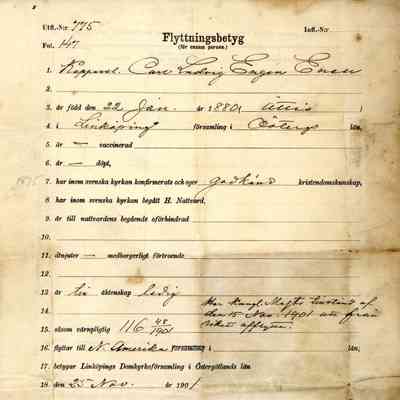 Utfl.-N:r 775 Infl.-N:r
Fol. 147
Flyttningsbetyg
(för ensam person.)
1. Carl Ludvig Eugen
2.
3. är född den 22 Jan. år 1880
4. i Linköping församling i Österg. län,
5. är — vaccinerad
6. är — döpt,
7. har inom svenska kyrkan konfirmerats och eger godkänd kristendomskunskap,
8. har inom svenska kyrkan begått H. Nattvard,
9. är till nattvardens begående oförhindrad
10.
11. åtnjuter — medborgerligt förtroende
12.
13. är till äktenskap ledig
14. Har Kungl. Maj:ts tillstånd af
den 15 Nov. 1901 att från
riket afflytta.
15. såsom värnpligtig 116 48/1901
16. flyttar till N. Amerika församling i län;
17. betygar Linköpings Domkyrkoförsamling i Östergötlands län
18. den 25 Nov. år 1901